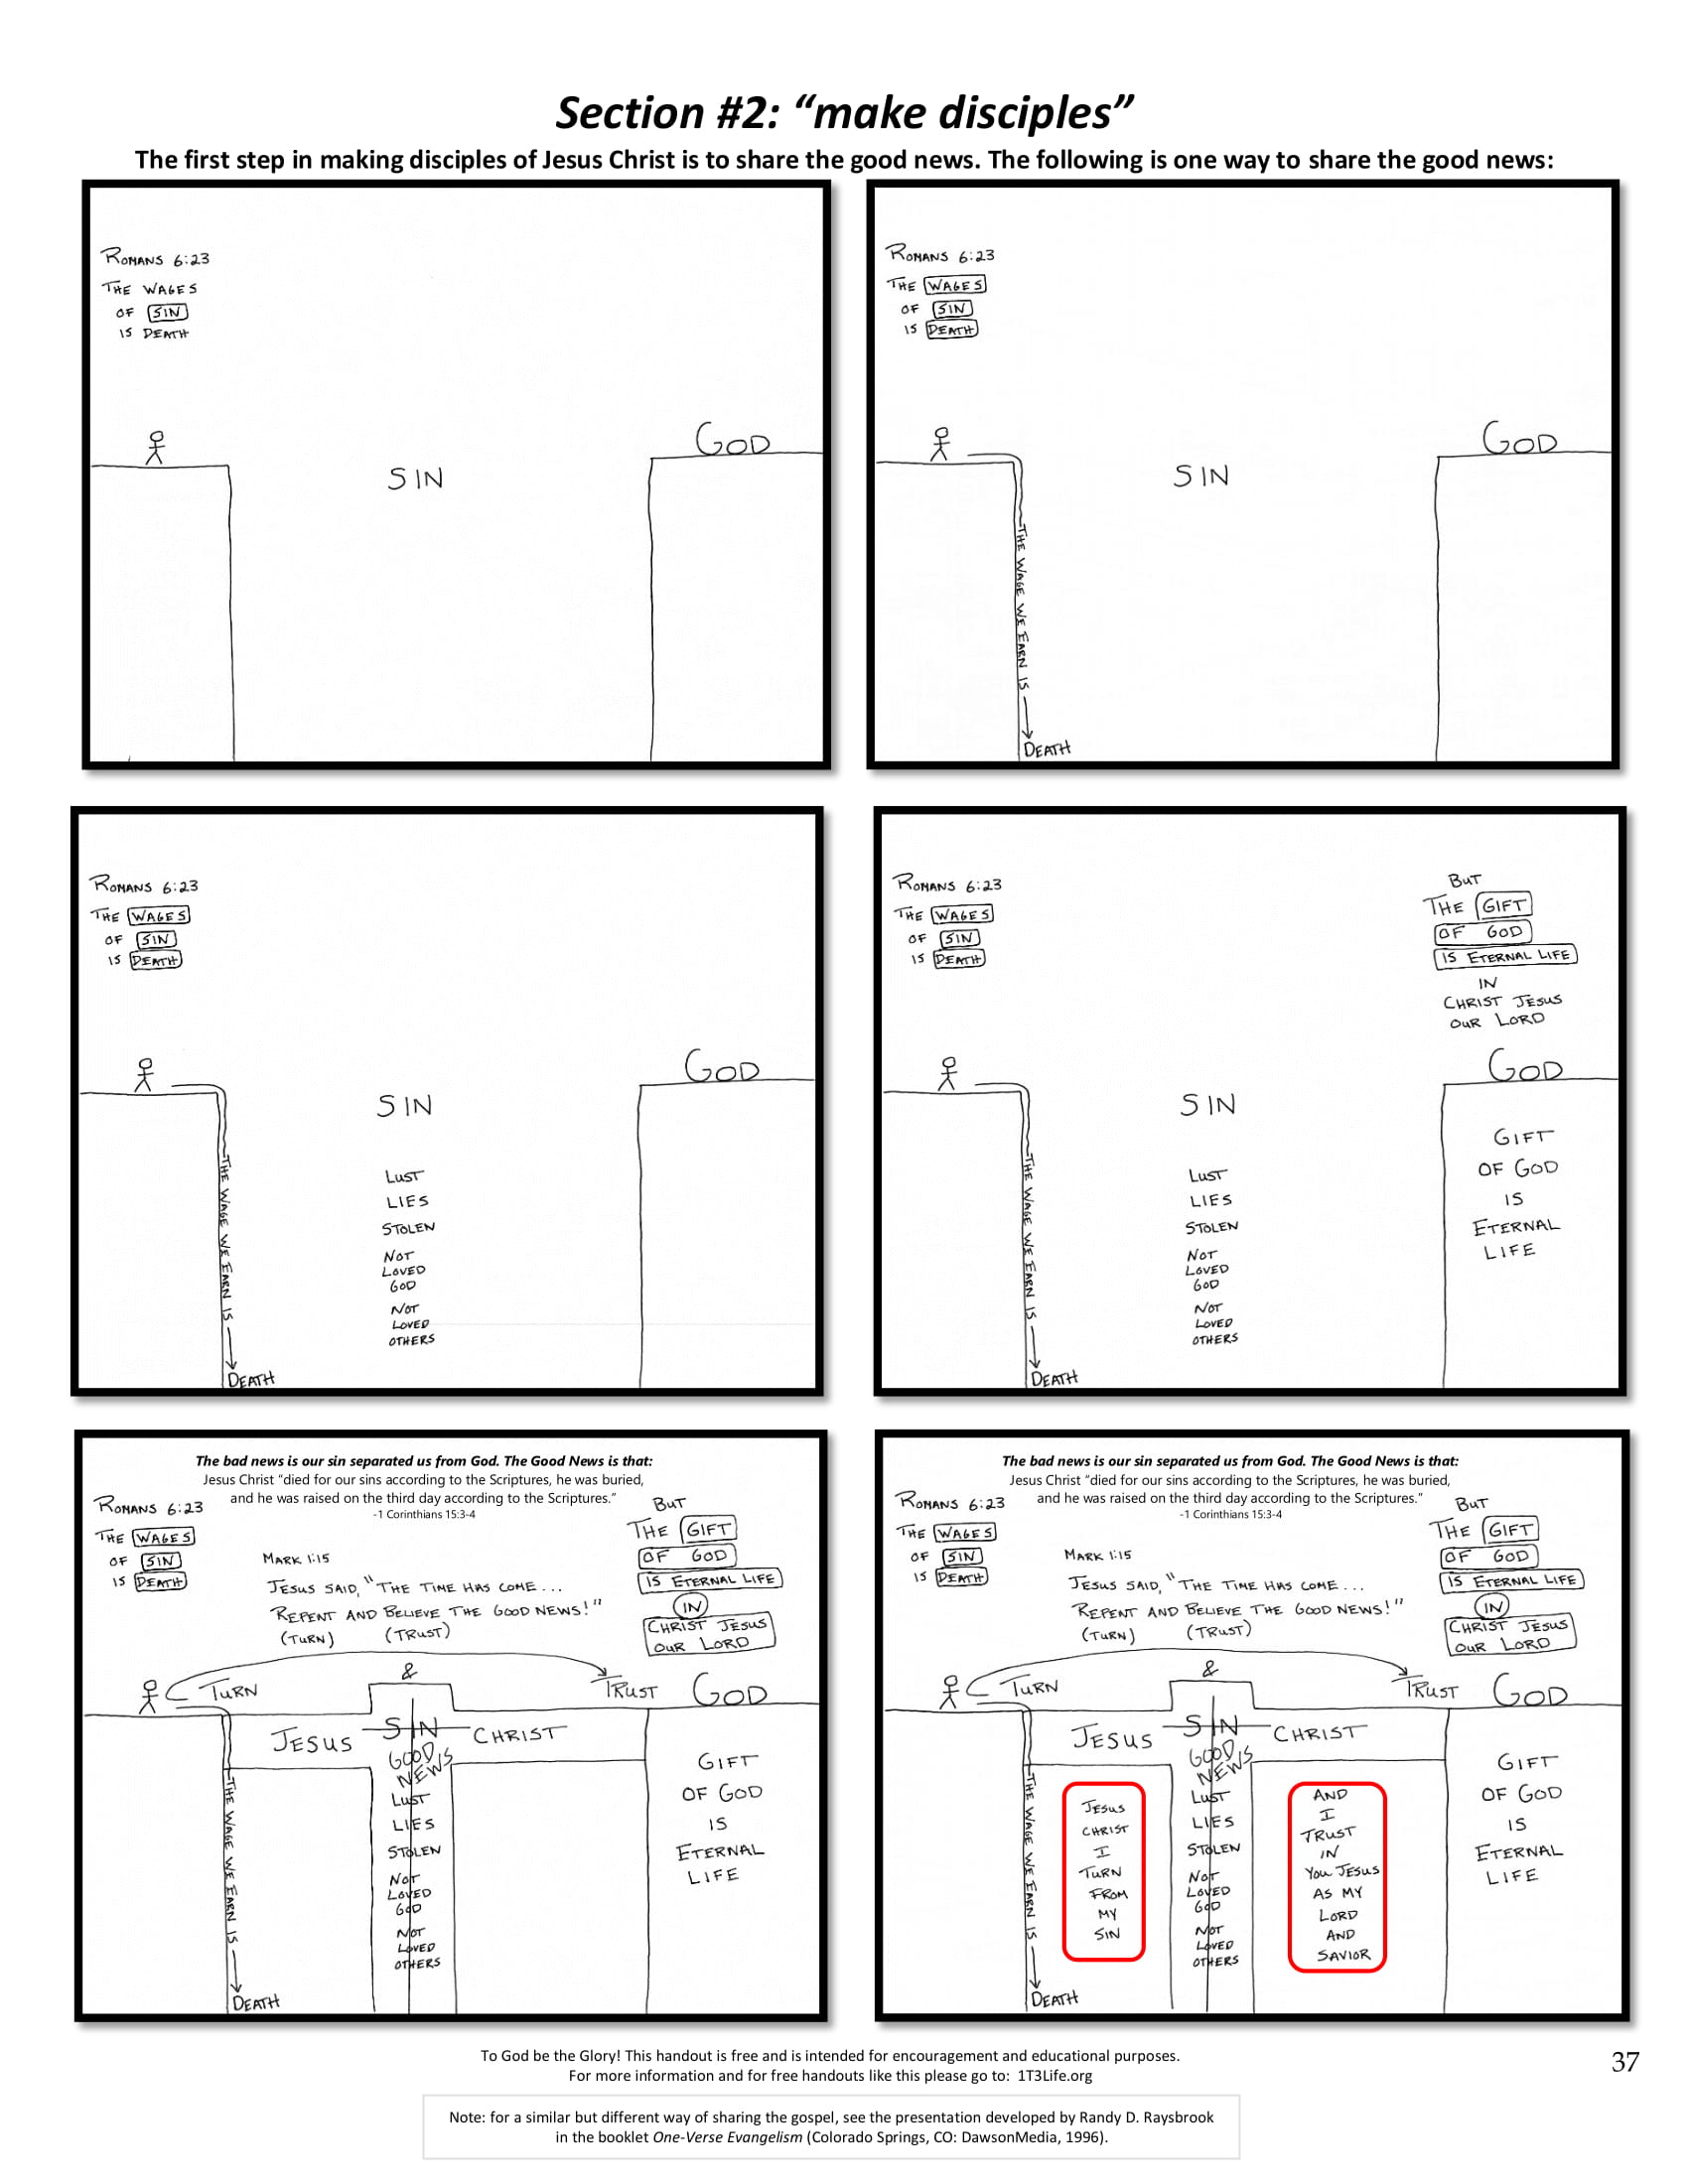 Section #2: “make disciples”
The first step in making disciples of Jesus Christ is to share the good news. The following is one way to share the good news:
ROMANS 6:23
THE WAGES
OF SIN
IS DEATH
GOD
SIN
ROMANS 6:23
THE WAGES
OF SIN
IS DEATH
GOD
SIN
THE WAGE WE EARN IS
DEATH
ROMANS 6:23
THE WAGES
OF SIN
IS DEATH
GOD
SIN
LUST
LIES
STOLEN
NOT
LOVED
GOD
NOT
LOVED
OTHERS
THE WAGE WE EARN IS
DEATH
ROMANS 6:23
THE WAGES
OF SIN
IS DEATH
BUT
THE GIFT
OF GOD
IS ETERNAL LIFE
IN
CHRIST JESUS
OUR LORD
GOD
SIN
LUST
LIES
STOLEN
NOT
LOVED
GOD
NOT
LOVED
OTHERS
GIFT
OF GOD
IS
ETERNAL
LIFE
THE WAGE WE EARN IS
DEATH
The bad news is our sin separated us from God. The Good News is that:
Jesus Christ “died for our sins according to the Scriptures, he was buried,
and he was raised on the third day according to the Scriptures.”
-1 Corinthians 15:3-4
ROMANS 6:23
THE WAGES
OF SIN
IS DEATH
MARK 1:15
JESUS SAID, "THE TIME HAS COME...
REPENT AND BELIEVE THE GOOD NEWS!"
(TURN) (TRUST)
BUT
THE GIFT
OF GOD
IS ETERNAL LIFE
IN
CHRIST JESUS
OUR LORD
TURN & TRUST GOD
JESUS SIN CHRIST
GOOD
NEWS IS
LUST
LIES
STOLEN
NOT
LOVED
GOD
NOT
LOVED
OTHERS
GIFT
OF GOD
IS
ETERNAL
LIFE
THE WAGE WE EARN IS
DEATH
The bad news is our sin separated us from God. The Good News is that:
Jesus Christ “died for our sins according to the Scriptures, he was buried,
and he was raised on the third day according to the Scriptures.”
-1 Corinthians 15:3-4
ROMANS 6:23
THE WAGES
OF SIN
IS DEATH
MARK 1:15
JESUS SAID, "THE TIME HAS COME...
REPENT AND BELIEVE THE GOOD NEWS!"
(TURN) (TRUST)
BUT
THE GIFT
OF GOD
IS ETERNAL LIFE
IN
CHRIST JESUS
OUR LORD
TURN & TRUST GOD
JESUS SIN CHRIST
GOOD
NEWS IS
JESUS
CHRIST
I
TURN
FROM
MY
SIN
LUST
LIES
STOLEN
NOT
LOVED
GOD
NOT
LOVED
OTHERS
AND
I
TRUST
IN
YOU JESUS
AS MY
LORD
AND
SAVIOR
GIFT
OF GOD
IS
ETERNAL
LIFE
THE WAGE WE EARN IS
DEATH
To God be the Glory! This handout is free and is intended for encouragement and educational purposes.
For more information and for free handouts like this please go to: 1T3Life.org
37
Note: for a similar but different way of sharing the gospel, see the presentation developed by Randy D. Raysbrook
in the booklet One-Verse Evangelism (Colorado Springs, CO: DawsonMedia, 1996).